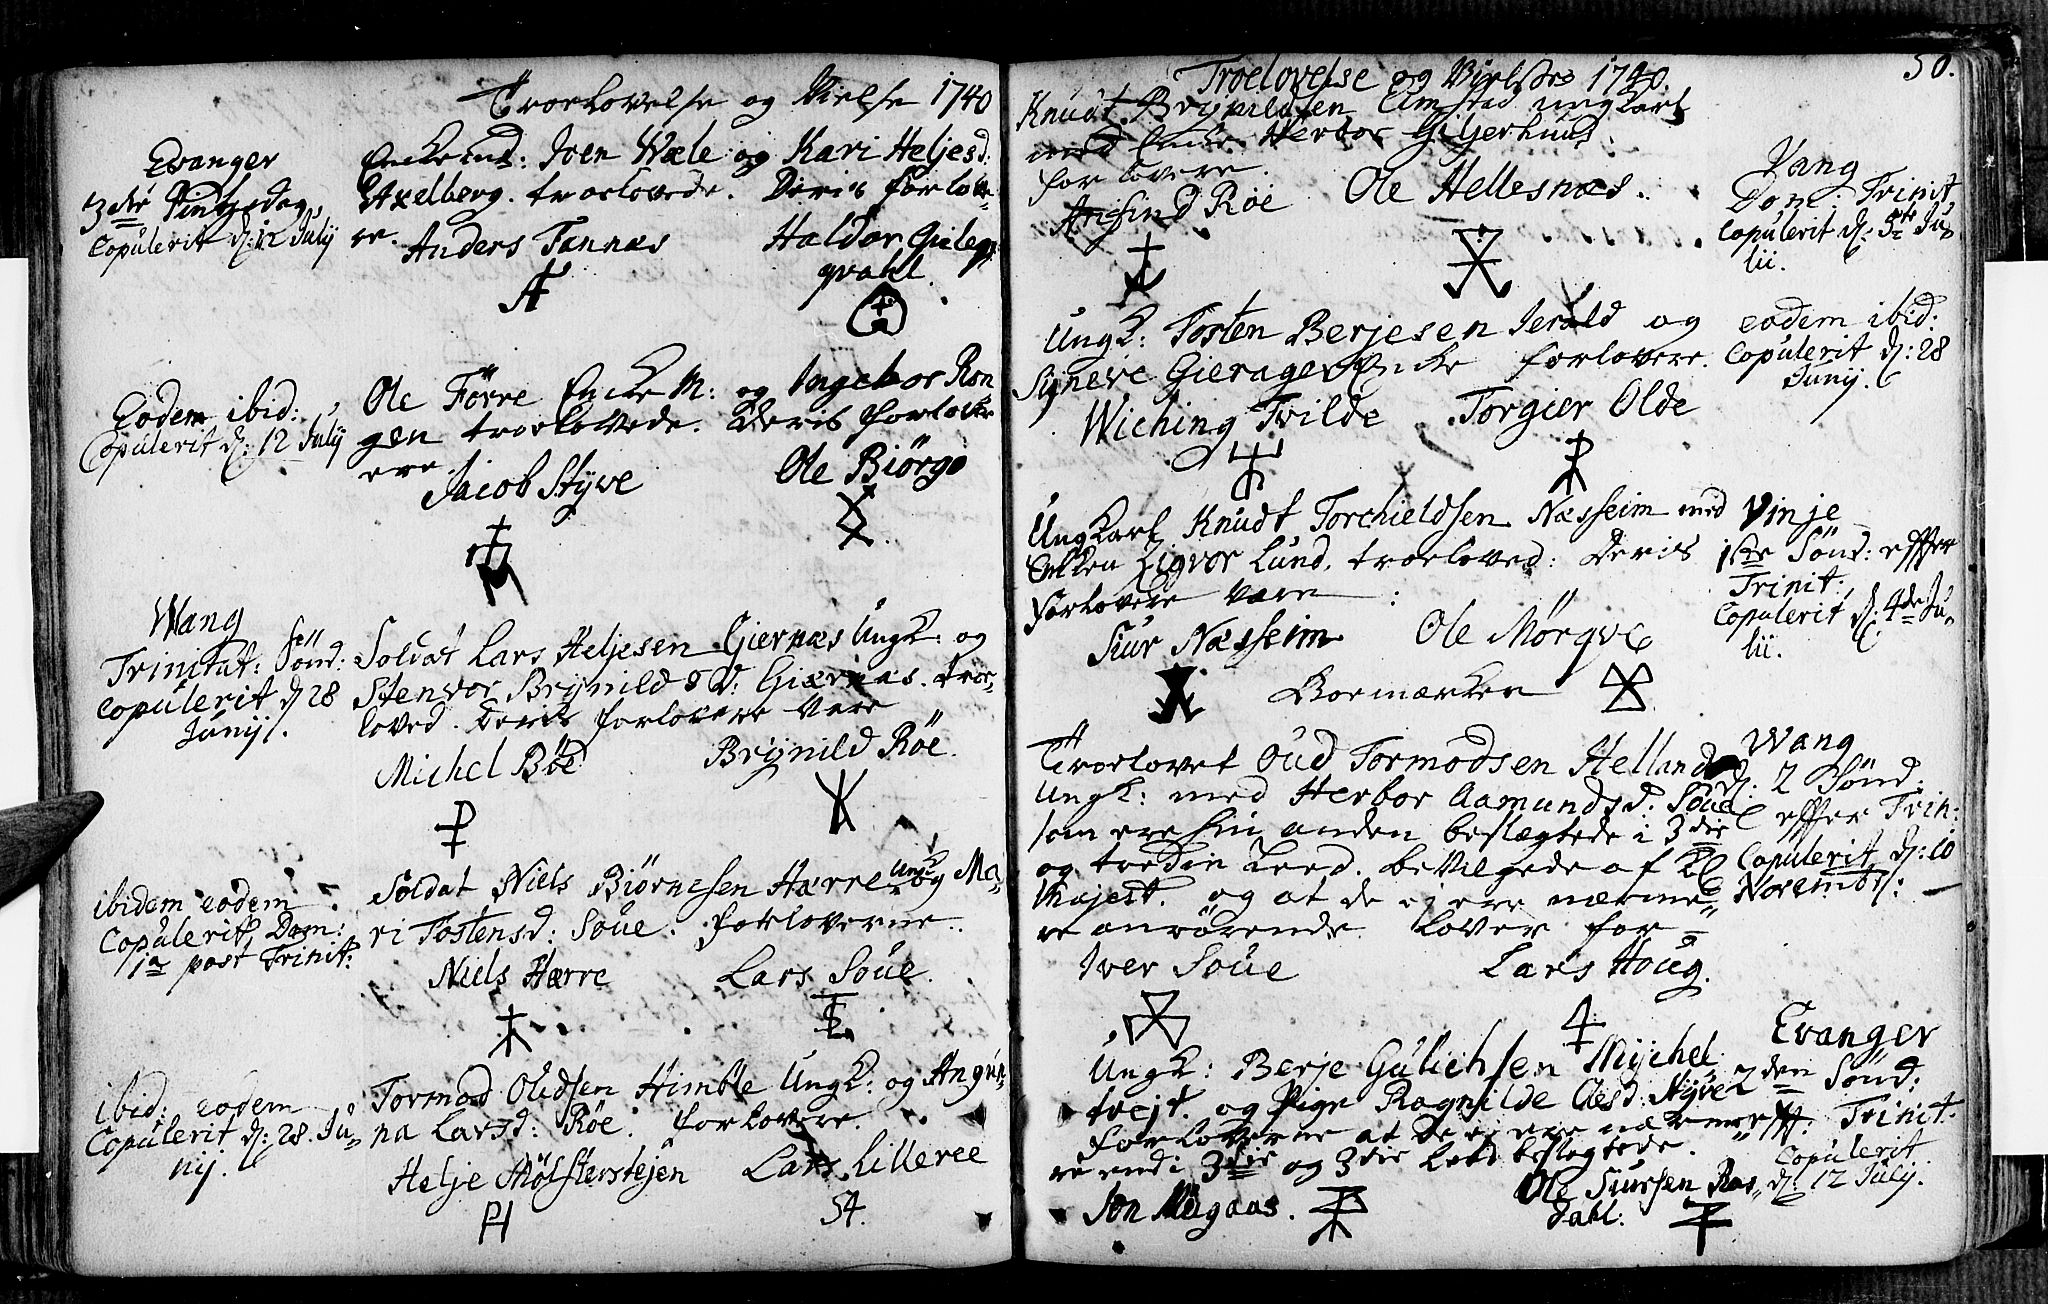 Troelovelse og Vielse 1740
Evanger
3die Pintzedag
Copulerit d: 12 Julij
Enkemd: Iven Wæle og Kari Heljesd:
Axelberg. troelovede. Deris forlove-
re.
Anders Fannæs
Haldor Gieleq-
qvahl.
Eodem ibid:
Copulerit d: 12 Julij
Ole Förre EnckeM: og Ingebor Ron
gen troelovede. Deris forlov
ere
Jacob Styve
Ole Biörgo
Wang
Trinitat: Sönd:
Copulerit d 28
Junij.
Soldat Lars Heljesen Giernæs Ungk: og
Stenvor Brynild sd: Giernæs. troe-
loved. Deris forlovere vare
Michel Böe
Brynild Röe.
ibidem eodem
Copulerit Dom:
1a post Trinit:
Soldat Niels Biörnesen Hærre Ungk og Ma-
ri Tostensd: Söue. forloverne.
Niels Hærre
Lars Söue.
ibid: eodem
Copulerit d: 28. Ju-
nij.
Tormod Olidsen Himble Ungk: og Angun-
na Larsd: Röe. forlovere.
Helje Mölsterstejen
Lars Lilleree
Troelovelse og Vielse 1740.
50.
Knudt Brynildsen Ungkarl
med Enke Herbor Giljerhuus
forlovere.
Arisind Röe
Ole Hellesnæs.
Vang
Dom: Trinit
Copulerit d: 5te Ju-
lii.
Ungk: Tosten Berjesen Jerald og
Syneve Gierager Encke forlovere.
Wiching Tvilde
Torgier Olde
eodem ibid:
Copulerit d: 28
Junij.
Ungkarl Knudt Torchieldsen Næsheim med
Enken Zigvor Lund. troeloved: Deris
forlovere vare:
Siur Næsheim
Ole Mörqve
Boemærker
Vinje
1ste Sönd: effter
Trinit:
Copulerit d. 4de Ju-
lii.
Troelovet Oud Tormodsen Helland
Ungk: med Herbor Aamundsd: Söue
som ere hin anden beslægtede i 3die
og tredie Leed. bevilgede af Kl
Majest. og at de ej ere nærme-
re anrörende lover for-
Iver Söue
Lars Houg.
Wang
d: 2 Sönd:
effter Trin:
Copulerit d: 10
Novembr:
Ungk: Berje Gulichsen Mychel
trejt. og Pige Ragnilde Olesd: Nyve
forloverne at de ej ere nærme-
re end i 3die og 3die Leed beslegtede.
Jon Mügaas.
Ole Siursen Ras-
dahl:
Evanger
2den Sönd:
efft. Trinit.
Copulerit
d: 12 Julij.